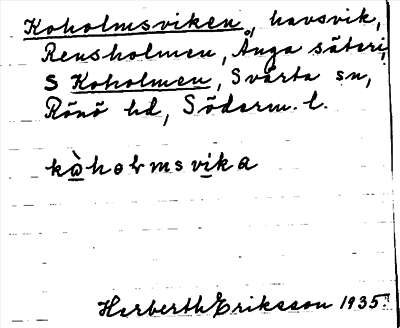 Koholmsviken, havsvik,
Rensholmen, Ånga säteri,
S Koholmen, Svärta sn,
Rönö hd, Söderm. l.
kὼholmsvika
Herberth Eriksson 1935.